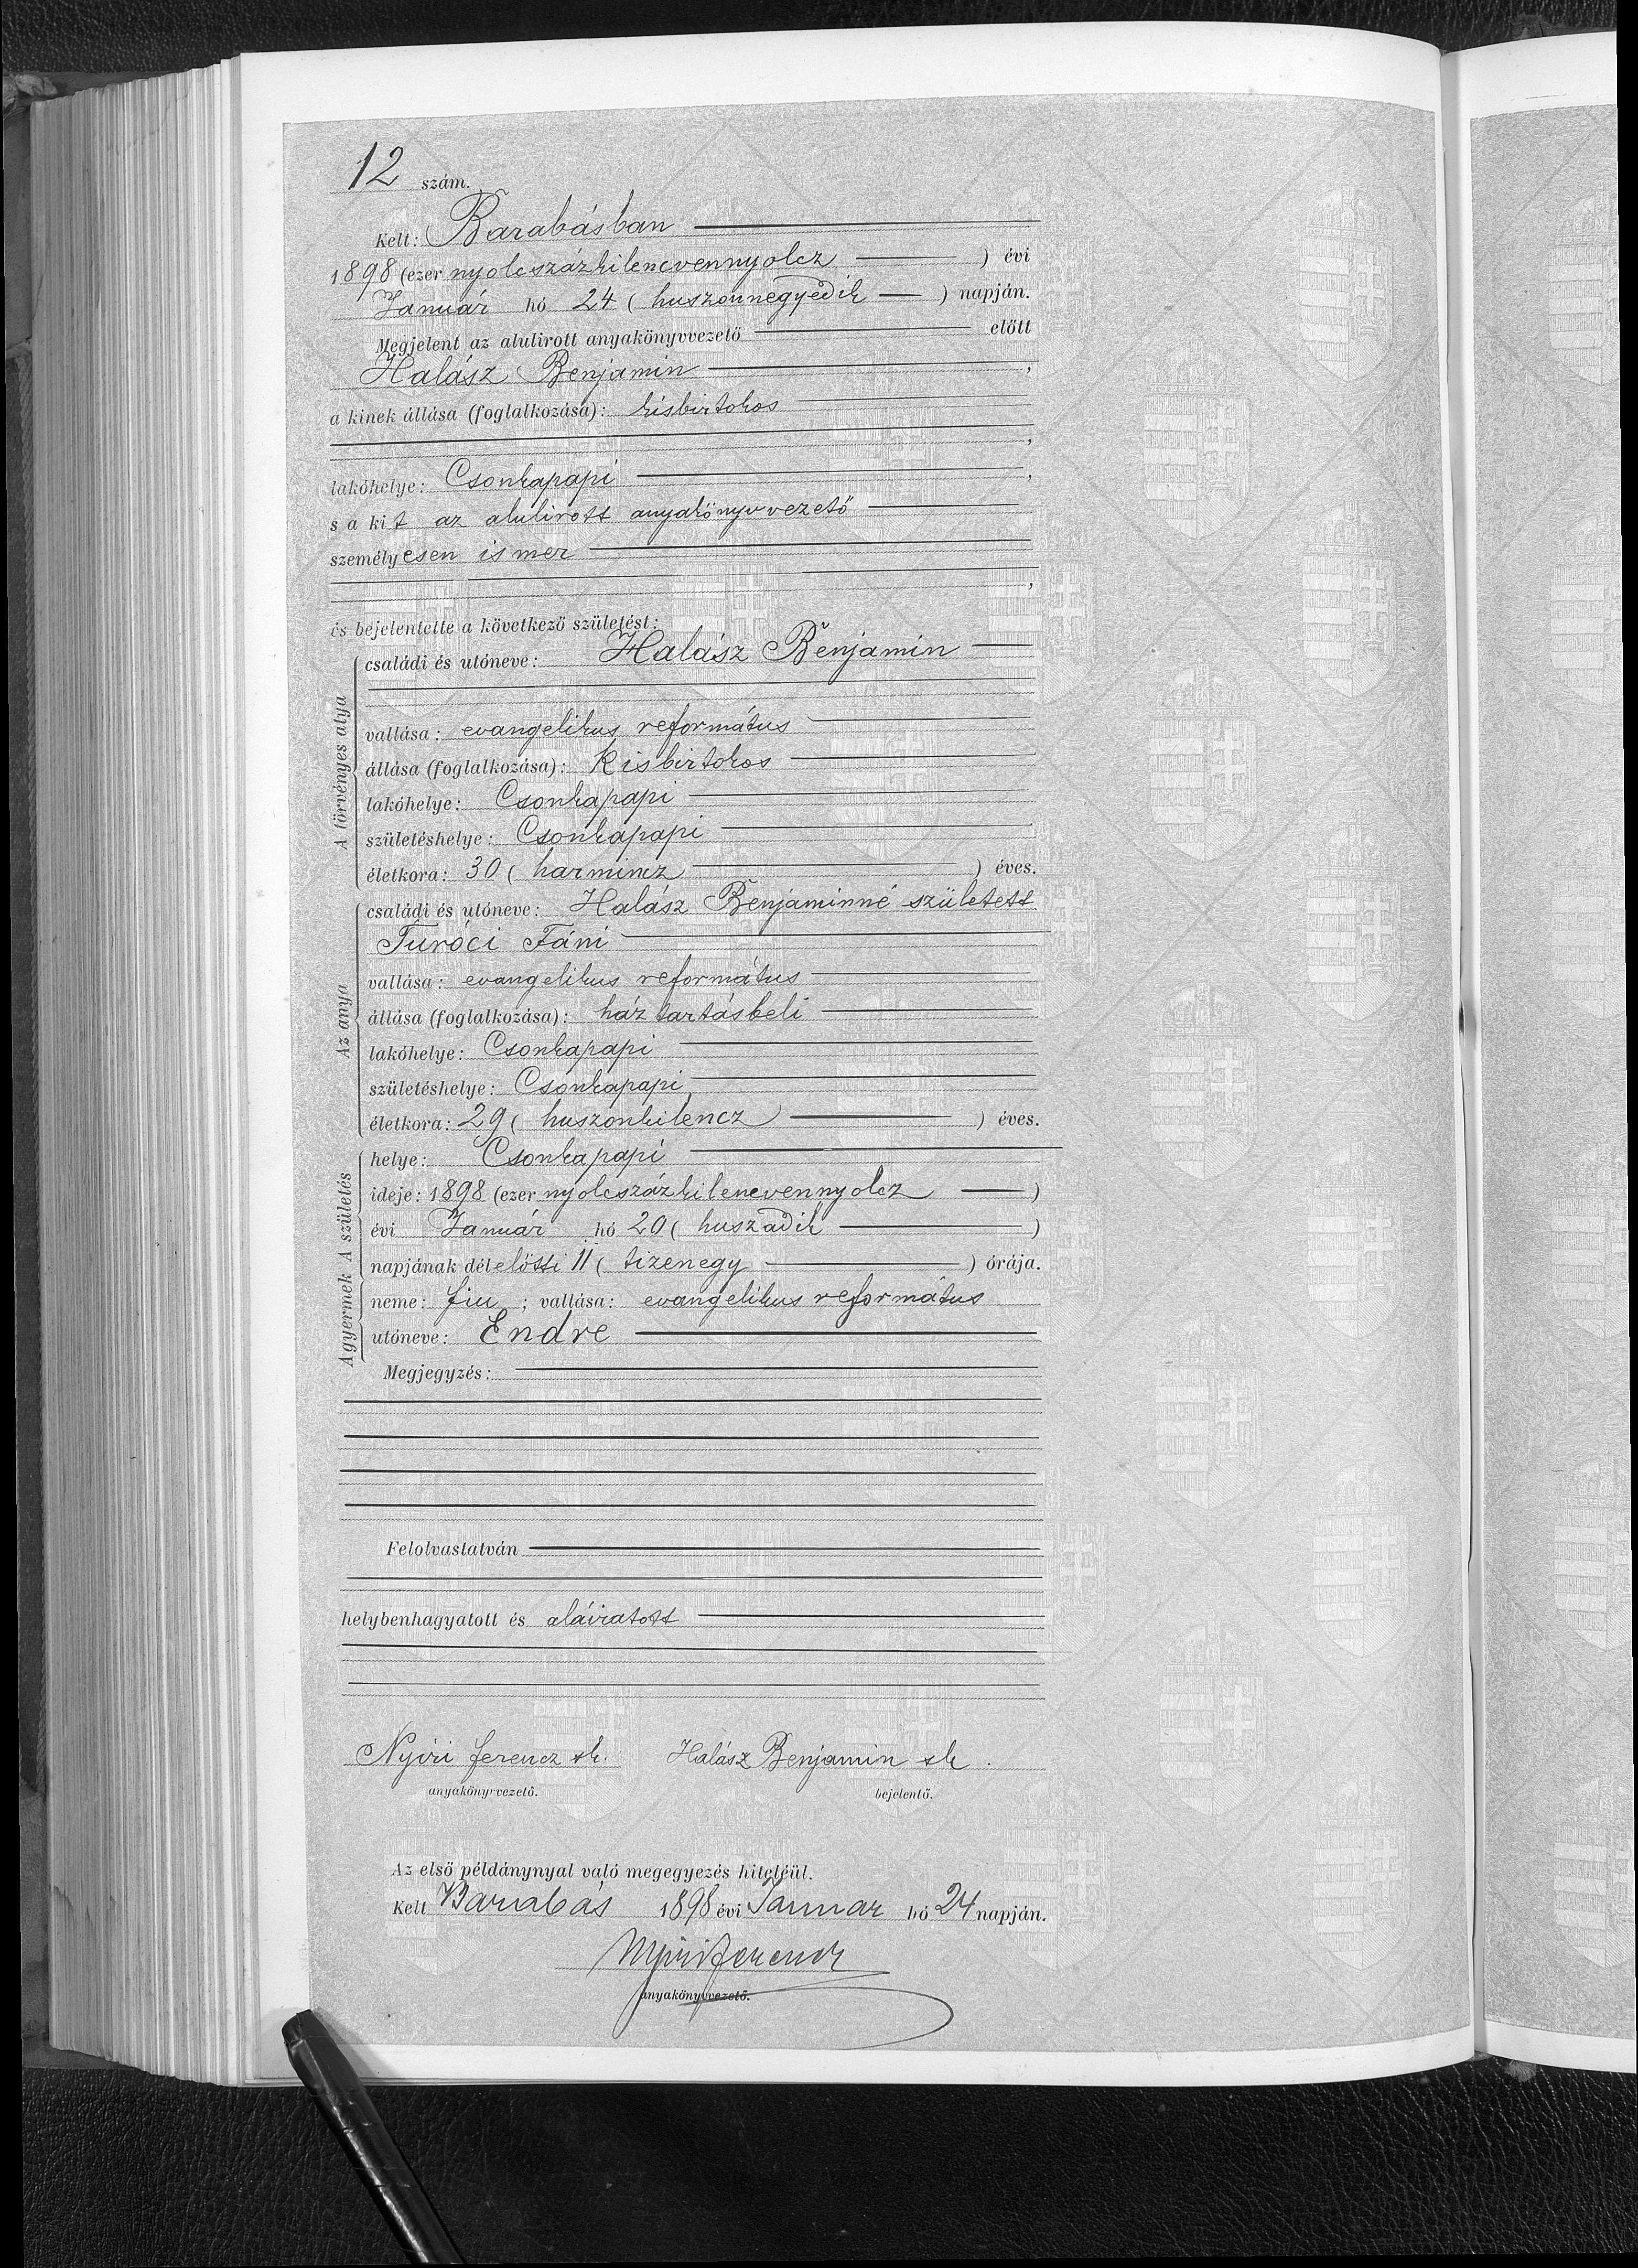 12 szám.
Kelt: Barabásban
1898 (ezer nyolcszázkilencvennyolcz ) évi
Január hó 24 ( huszonnegyedik ) napján.
Megjelent az alulirott anyakönyvvezető előtt
Halász Benjamin ,
a kinek állása (foglalkozása): kisbirtokos
,
lakóhelye: Csonkapapi ,
s a kit az alulirott anyakönyvvezető
személyesen ismer
,
és bejelentette a következő születést:
A törvényes atya
családi és utóneve: Halász Benjamin
vallása: evangelikus református
állása (foglalkozása): Kisbirtokos
lakóhelye: Csonkapapi
születéshelye: Csonkapapi
életkora: 30 ( harmincz ) éves.
Az anya
családi és utóneve: Halász Benjaminné született
Turóci Fáni
vallása: evangelikus református
állása (foglalkozása): háztartásbeli
lakóhelye: Csonkapapi
születéshelye: Csonkapapi
életkora: 29 ( huszonkilencz ) éves.
A születés
helye: Csonkapapi
ideje: 1898 (ezer nyolcszázkilencvennyolcz )
évi Január hó 20 ( huszadik )
napjának délelőtti 11 ( tizenegy ) órája.
A gyermek
neme: fiu ; vallása: evangelikus református
utóneve: Endre
Megjegyzés:
Felolvastatván
helybenhagyatott és aláiratott
Nyiri Ferencz sk. Halász Benjamin sk.
anyakönyvvezető. bejelentő.
Az első példánynyal való megegyezés hiteléül.
Kelt Barabás 1898 évi Januar hó 24 napján.
Nyiri Ferencz
anyakönyvvezető.